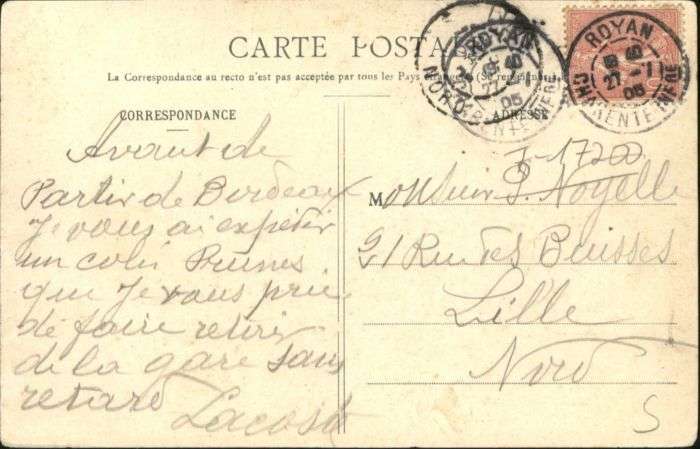 CARTE POSTA
La Correspondance au recto n'est pas acceptée par tous les Pays étrangers (Se renseign
CORRESPONDANCE
ADRESSE
ROYAN
27
05
CHARENTE INFRE
ROYAN
27
05
NORD
Avant de
Partir de Bordeaux
Je vous ai expetir
un colis Prunes
que Je vous prie
de faire retirer
de la gare sans
retard
Lacoste
17200
Monsieur P. Noyelle
21 Rue des Buisses
Lille
Nord
S